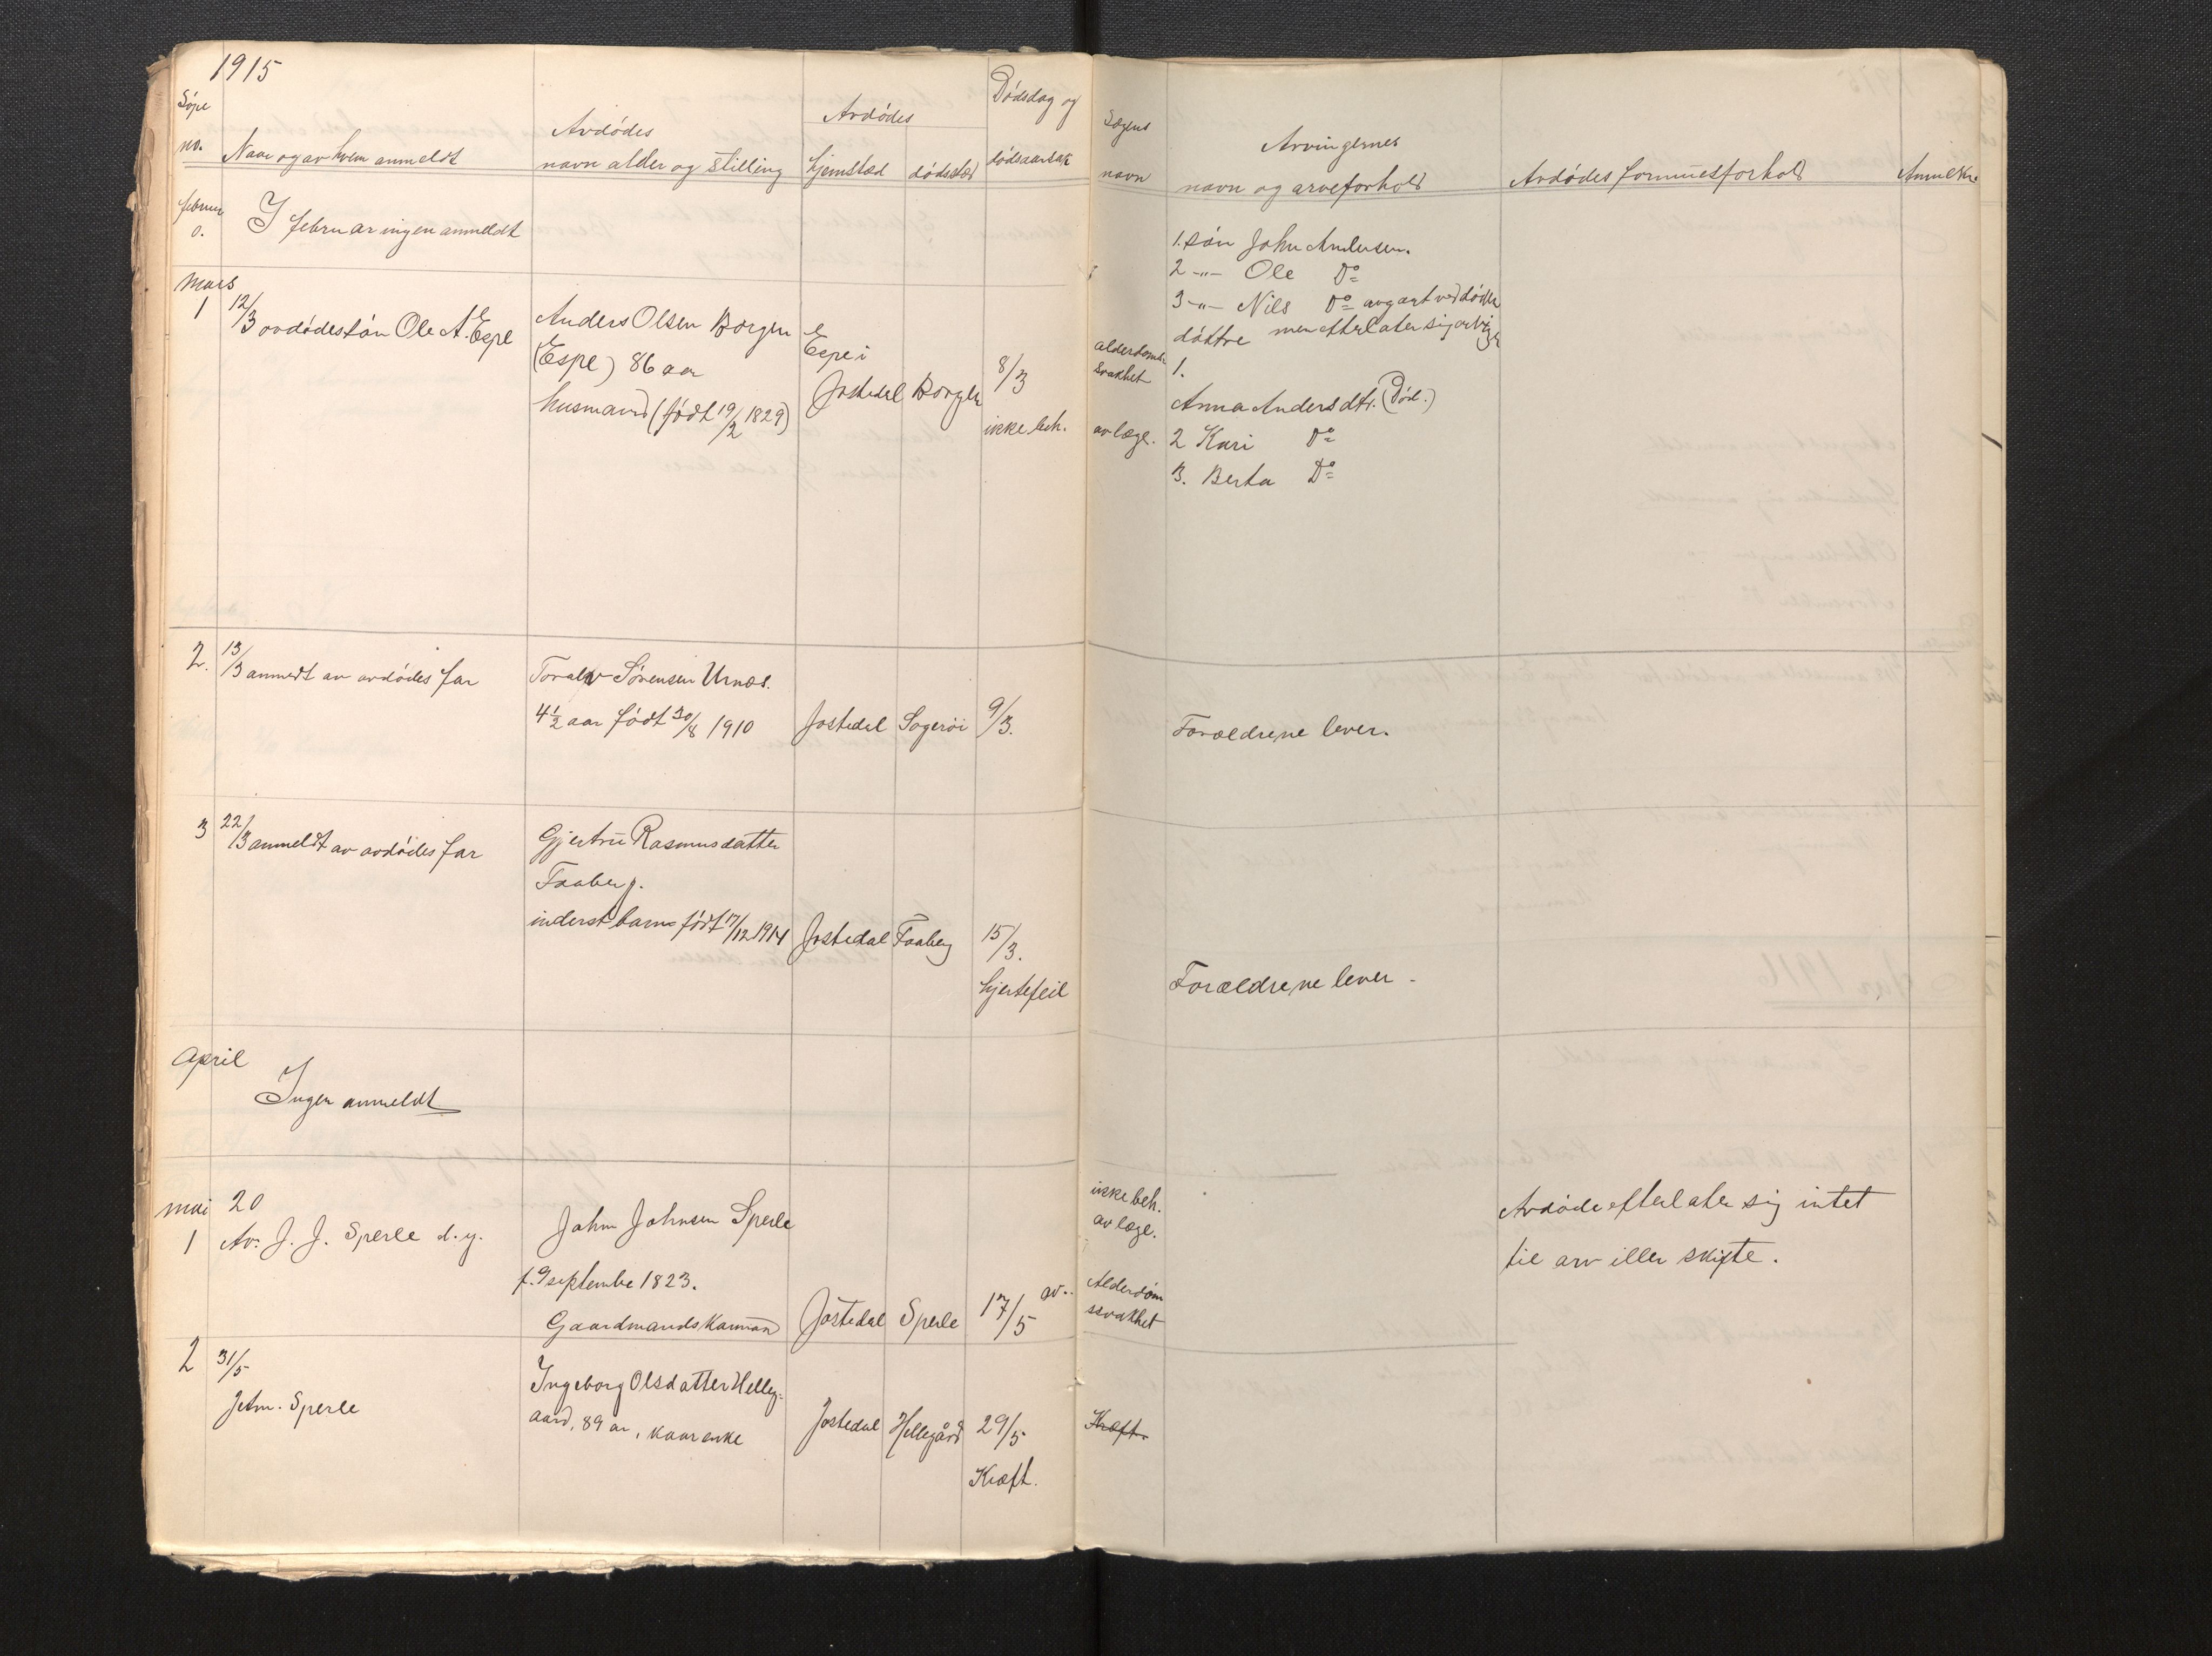 1915
Løpe
no.
Naar og av hvem anmeldt
Avdødes
navn alder og stilling
Avdødes
hjemsted
dødssted
Dødsdag og
dødsaarsak
Lægens
navn
Arvingernes
navn og arveforhold
Avdødes formuesforhold
februar
0.
I februar ingen anmeldt
Mars
1
12/3 avdødes søn Ole A. Espe
Anders Olsen Borgen
(Espe) 86 aar
husmand (født 19/2 1829)
Espe i
Jostedal
Borgen
8/3
ikke beh.
alderdoms
svakhet
av læge.
1. søn John Andersen.
2 -"- Ole Do
3 -"- Nils Do avgaat ved døden
men efterlater sig arving
døttre
1.
Anna Andersdtr. (Død.)
2 Kari Do
3. Berta Do
2.
13/3 anmedt av avdødes far
Toralv Sørensen Urnes.
4 1/2 aar født 30/8 1910
Jostedal
Sogerøi
9/3.
Forældrene lever.
3
22/3 anmeldt av avdødes far
Gjertru Rasmusdatter
Faaberg.
inderst barn født 17/12 1914
Jostedal
Faaberg
15/3.
hjertefeil
Forældrene lever.
April
Ingen anmeldt
mai
1
20
Av. J. J. Sperle d. y.
John Johnsen Sperle
f. 9 septembe 1823.
Gaardmandskaarman
Jostedal
Sperle
17/5
av..
ikke beh.
av læge.
Alderdom
ssvakhet
Avdøde efterlater sig intet
til arv iller skifte.
2
31/5
J. Sperle
Ingeborg Olsdatter Helleg-
aard, 89 aar, kaarenke
Jostedal
Hellegård
29/5
Kræft.
Kræft.